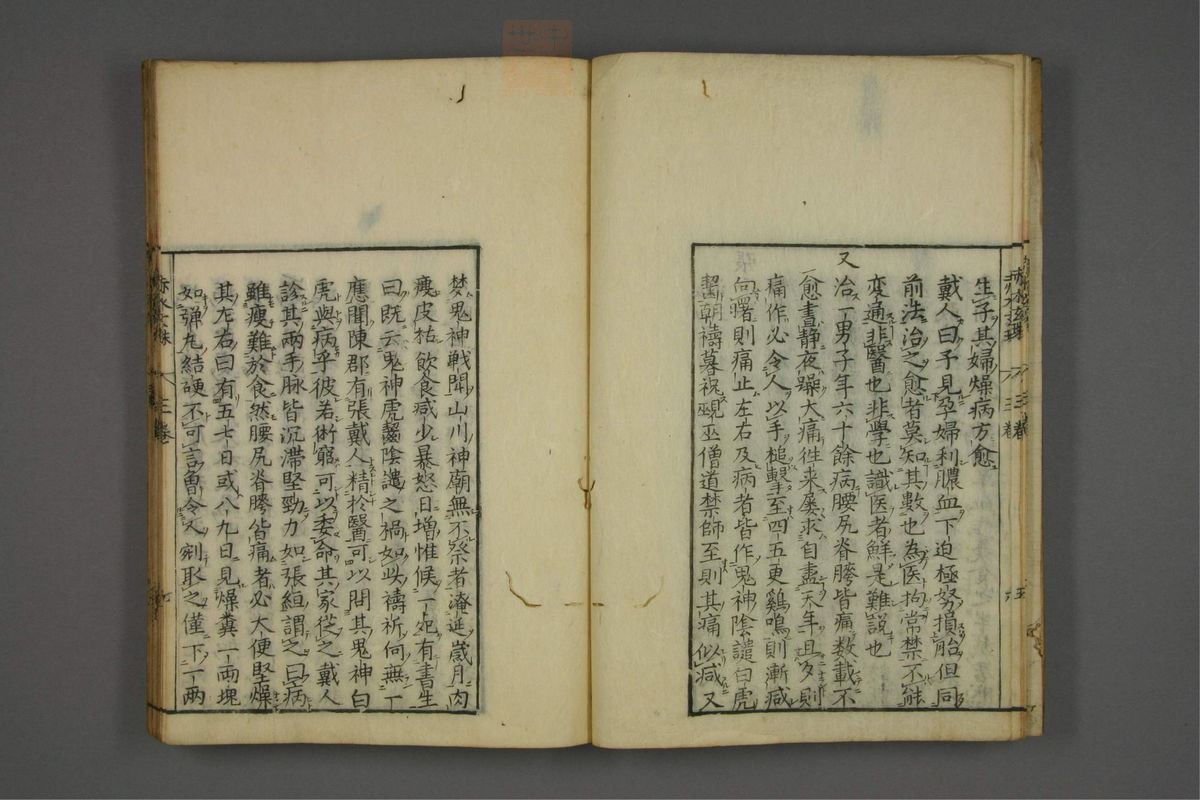 生子其婦燥病方愈
戴人曰予見孕婦利膿血下迫極努損胎但同
前法治之愈者莫知其數也為医拘常禁不能
変通非醫也非學也識医者鮮是難說也
又治一男子年六十餘病腰尻脊胯皆痛数載不
愈晝静夜躁大痛徃来屡求自盡天年且夕則
痛作必令人以手槌擊至四五更鷄鳴則漸减
向曙則痛止左右及病者皆作鬼神陰譴白虎
齧朝禱暮祝覡巫僧道禁師至則其痛似减又
梦鬼神戦閗山川神廟無不祭者淹延歳月肉
瘦皮枯飲食减少暴怒日増惟候一死有書生
曰既云鬼神虎齧陰譴之禍如此禱祈何無一
應聞陳郡有張戴人精於醫可以問其鬼神白
虎與病乎彼若術窮可以委命其家從之戴人
診其兩手脉皆沉滞堅勁力如張絙謂之曰病
雖瘦難於食然腰尻脊胯皆痛者必大便堅燥
其左右曰有五七日或八九日見燥糞一兩塊
如弾丸結硬不可言曽令人剜取之僅下一兩
三卷
三卷